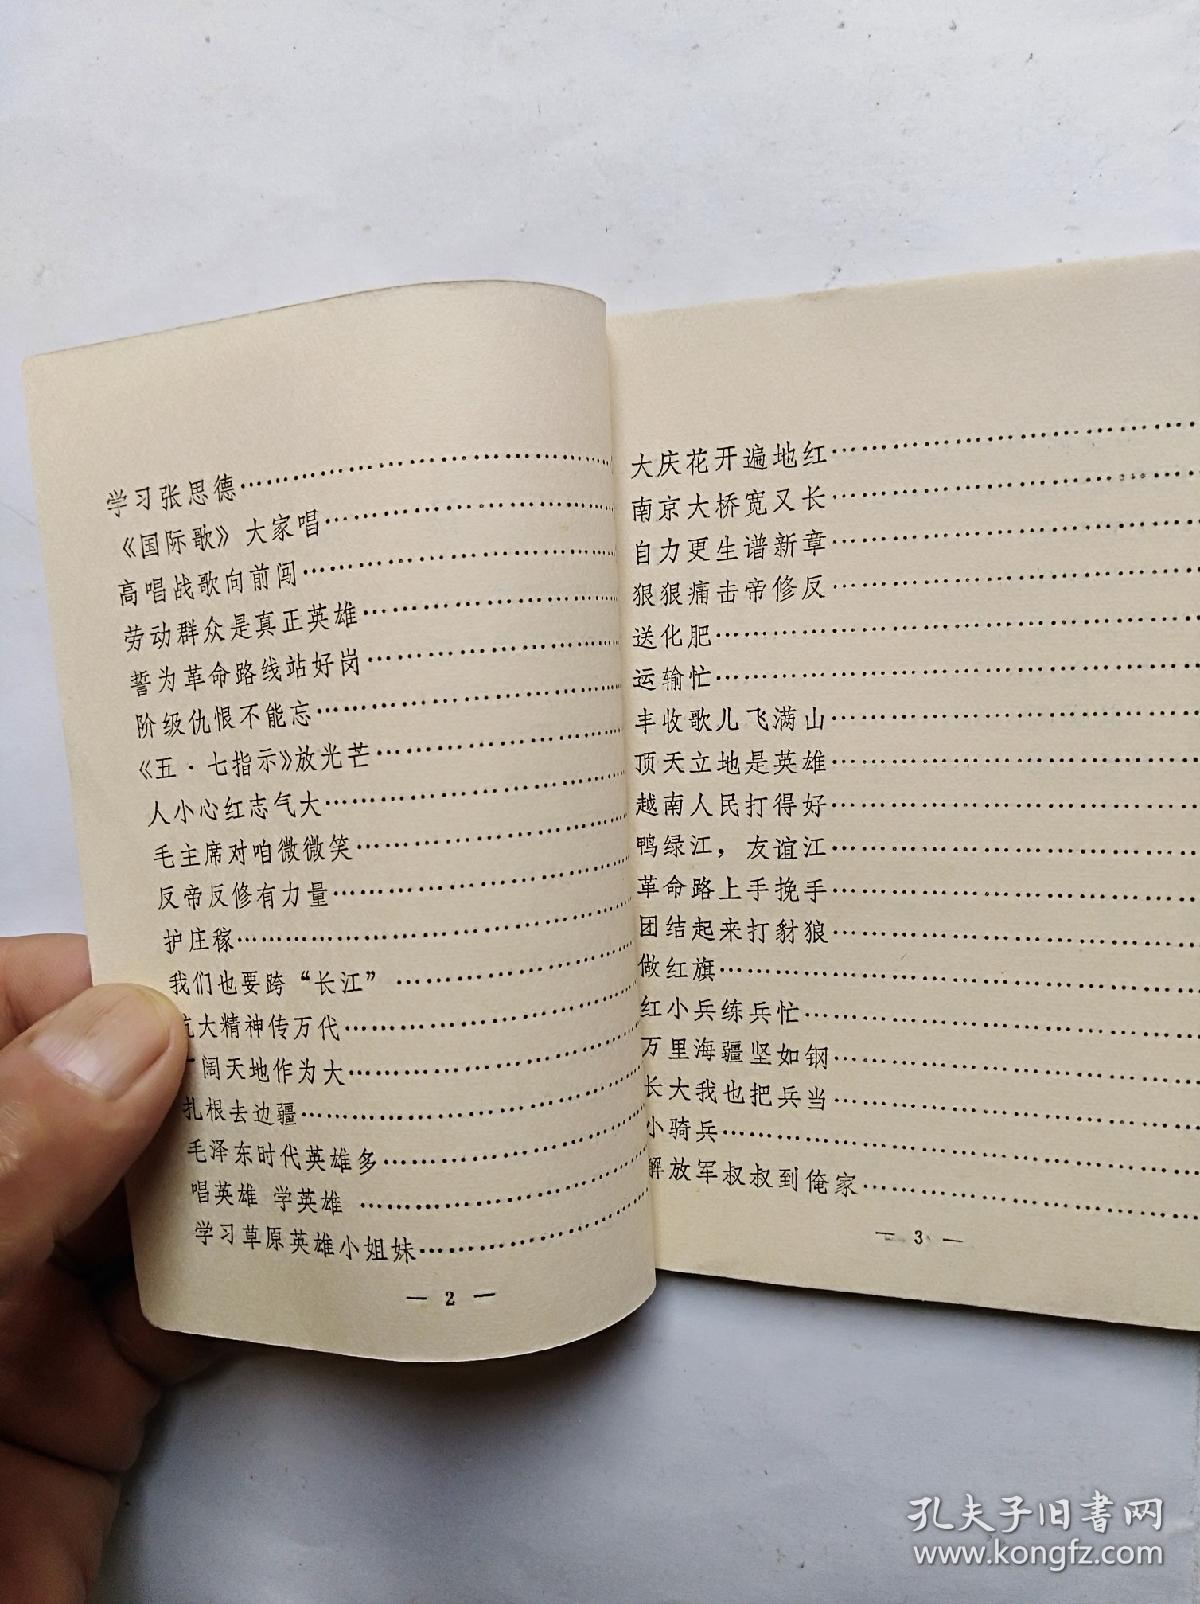 学习张思德………………
《国际歌》大家唱………………
高唱战歌向前闯………………
劳动群众是真正英雄………………
誓为革命路线站好岗………………
阶级仇恨不能忘………………
《五·七指示》放光芒………………
人小心红志气大………………
毛主席对咱微微笑………………
反帝反修有力量………………
护庄稼………………
我们也要跨“长江”………………
抗大精神传万代………………
阔天地作为大………………
扎根去边疆………………
毛泽东时代英雄多………………
唱英雄 学英雄………………
学习草原英雄小姐妹………………
— 2 —
大庆花开遍地红………………
南京大桥宽又长………………
自力更生谱新章………………
狠狠痛击帝修反………………
送化肥………………
运输忙………………
丰收歌儿飞满山………………
顶天立地是英雄………………
越南人民打得好………………
鸭绿江，友谊江………………
革命路上手挽手………………
团结起来打豺狼………………
做红旗………………
红小兵练兵忙………………
万里海疆坚如钢………………
长大我也把兵当………………
小骑兵………………
解放军叔叔到俺家………………
— 3 —
孔夫子旧书网
www.kongfz.com